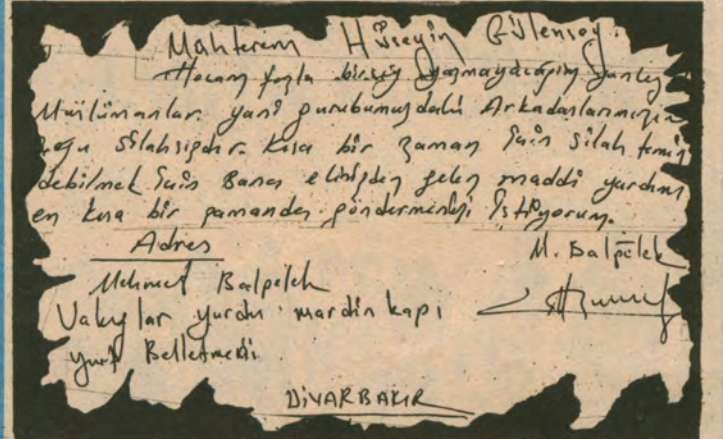 Mahterem Hüseyin Gülensoy.
Hocam fazla birşey yazmayacağım yanlız
Müslümanlar yani gurubumuzdaki Arkadaşlarımızın
çoğu silahsızdır. Kısa bir zaman için silah temin
edebilmek için Bana elinizden gelen maddi yardımı
en kısa bir zamanda göndermenizi istiyorum.
Adres
M. Balpetek
Mehmet Balpetek
Vakıflar yurdu mardin kapı
yurt Belletmeni
DİYARBAKIR